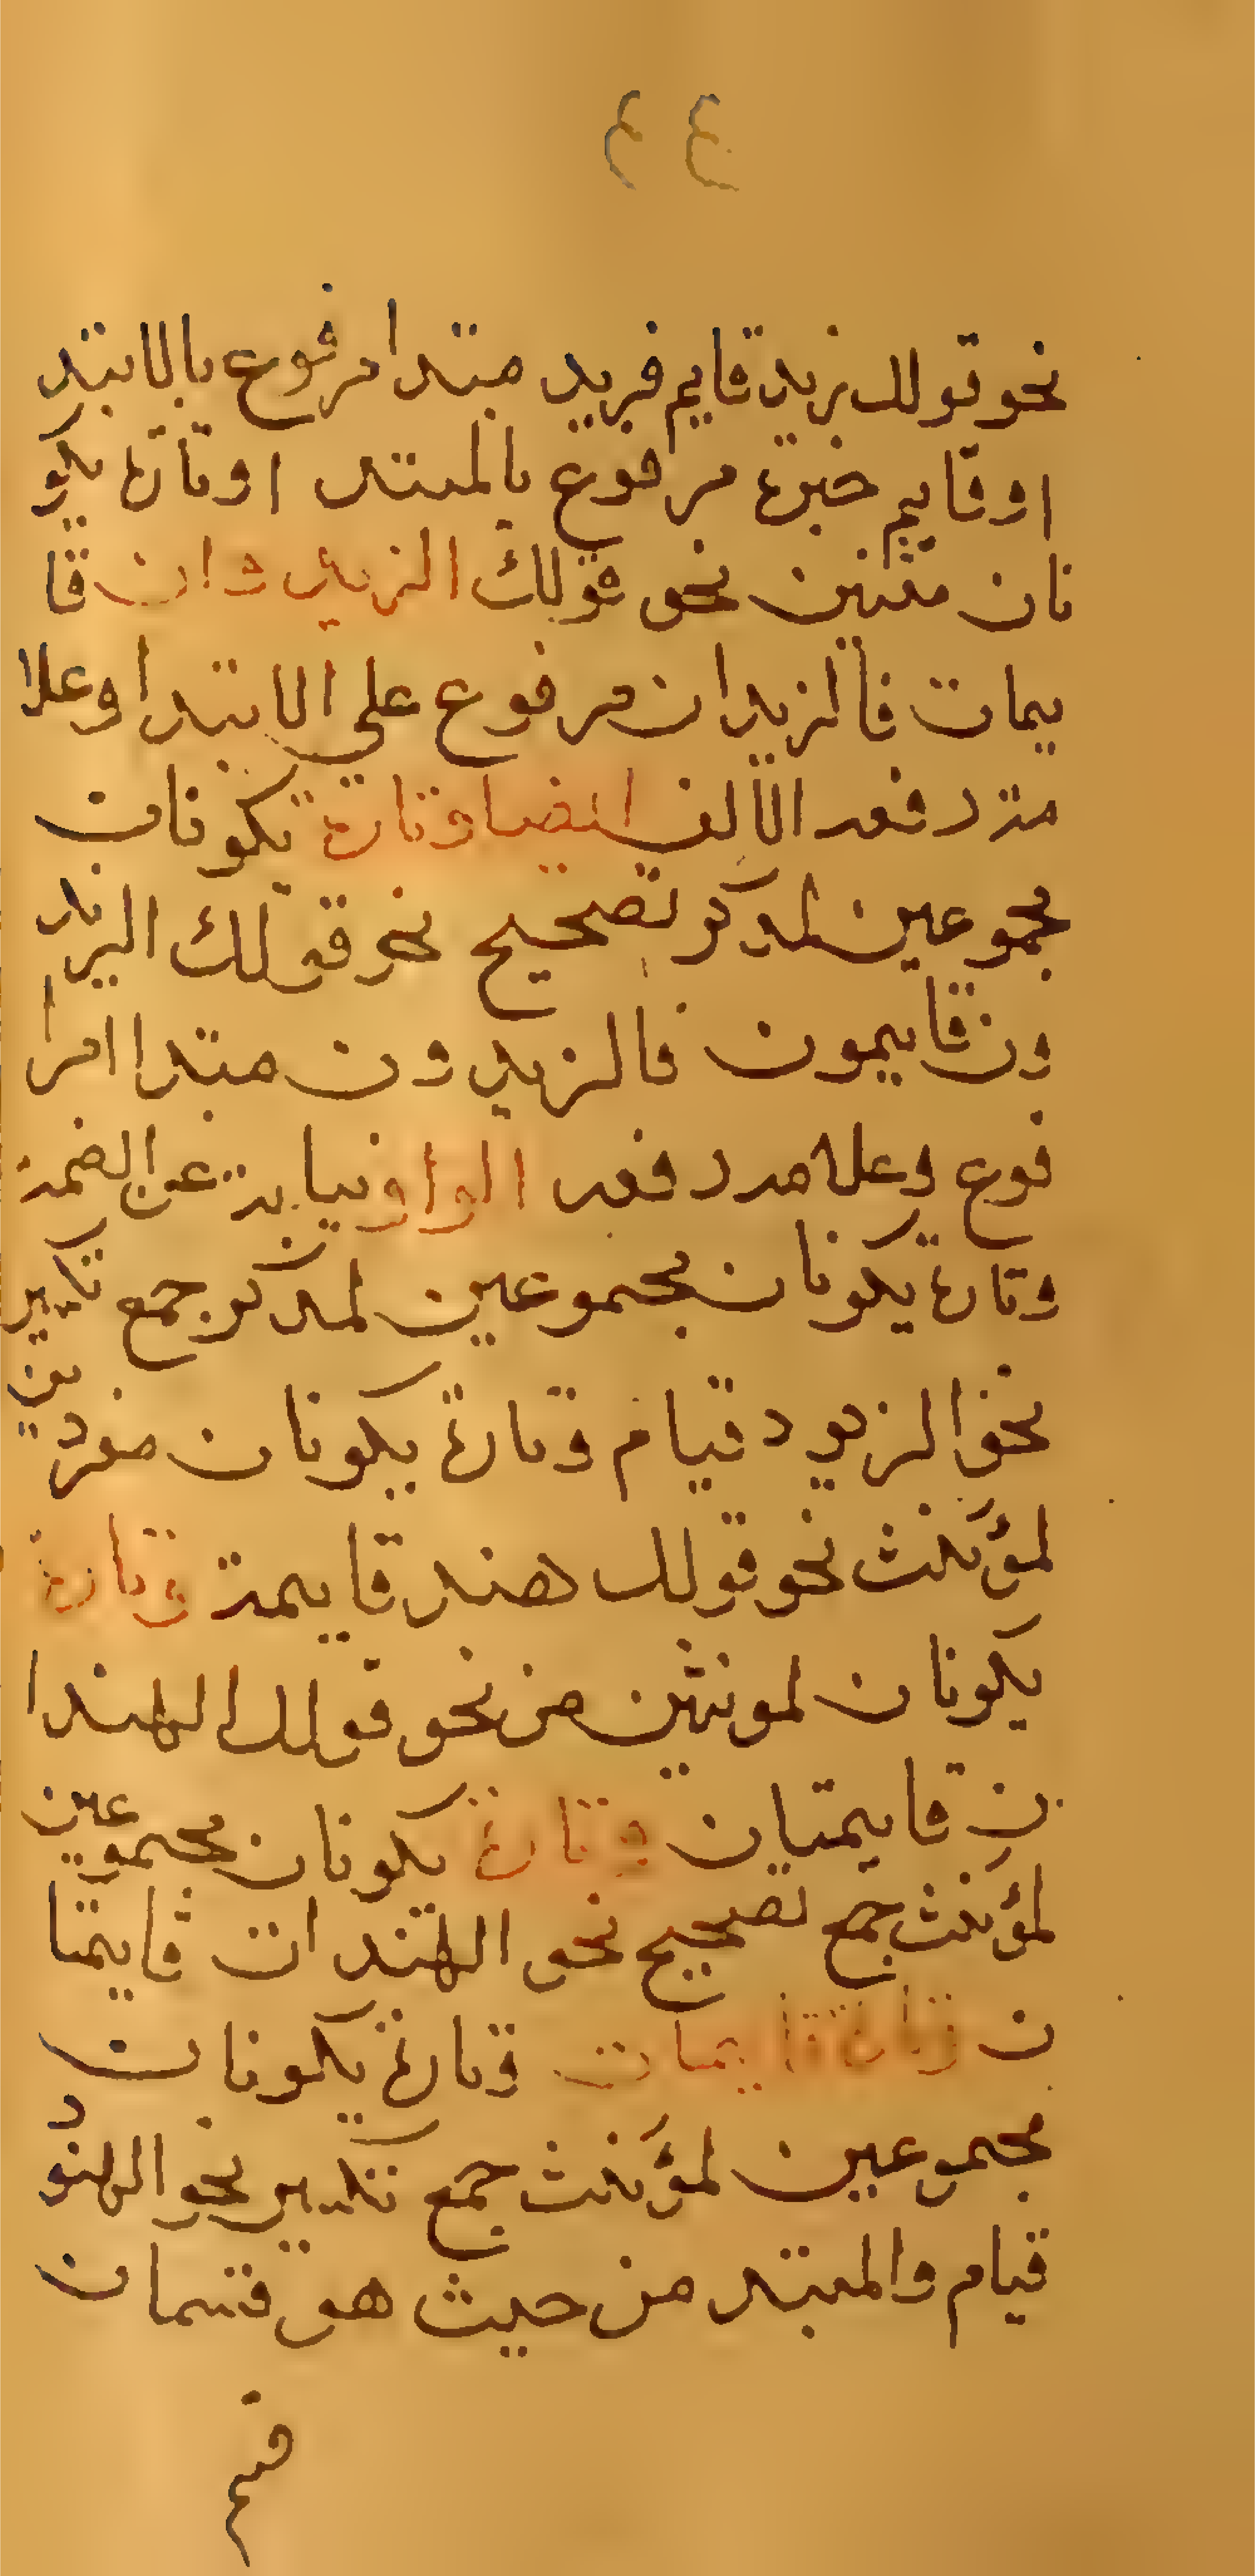 ٤٤
نحو قولك زيد قايم فزيد مبتدا مرفوع بالابتد
ا وقايم خبره مرفوع بالمبتد ا وتارة يكو
نان مثنين نحو قولك الزيد وان قا
يمان فالزيدان مرفوع علي الابتدا وعلا
مة رفعه الالف ايضا وتارة يكونان
مجموعين لمذكر تصحيح نحو قولك الزيد
ون قايمون فالزيدون مبتدا امر
فوع وعلامه رفعه الواو نيابة عن الضمة
وتارة يكونان مجموعين لمذكر جمع تكسير
نحو الزيود قيام وتارة يكونان مفردين
لمؤنث نحو قولك هند قايمة وتارة
يكونان لمونثين من نحو قولك الهندا
ن قايمتان وتارة يكونان مجموعين
لمؤنث جمع تصحيح نحو الهندات قايمتا
ن وتارة قايمات وتارة يكونان
مجموعين لمؤنث جمع تكسير نحو الهنود
قيام والمبتد من حيث هو قسمان
قسم